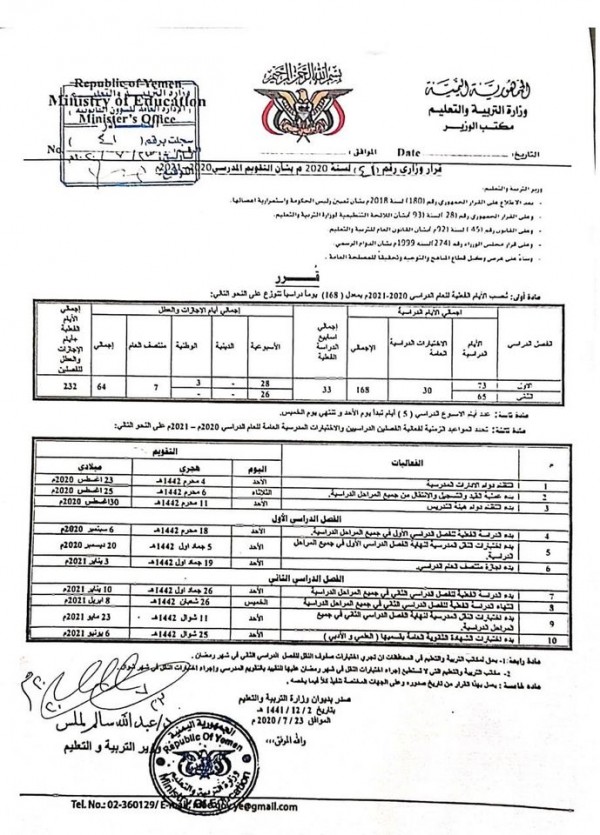 بسم الله الرحمن الرحيم
الجمهورية اليمنية
وزارة التربية والتعليم
مكتب الوزير
Republic of Yemen
Ministry of Education
Minister's Office
وزارة التربية والتعليم
الإدارة العامة للشؤون القانونية
سجلت برقم (٤١)
No.
التاريخ: الموافق: Date
قرار وزاري رقم (٤١) لسنة 2020م بشأن التقويم المدرسي 2020-2021م
وزير التربية والتعليم:
- بعد الاطلاع على القرار الجمهوري رقم (180) لسنة 2018م بشأن تعيين رئيس الحكومة واستمرارية اعضائها.
- وعلى القرار الجمهوري رقم (28) لسنة 93م بشأن اللائحة التنظيمية لوزارة التربية والتعليم.
- وعلى القانون رقم (45) لسنة 92م بشأن القانون العام للتربية والتعليم
- وعلى قرار مجلس الوزراء رقم (274) لسنة 1999م بشأن الدوام الرسمي.
- وبناءً على عرض وكيل قطاع المناهج والتوجيه وتحقيقاً للمصلحة العامة.
قرر
مادة أولى: تحسب الأيام الفعلية للعام الدراسي 2020-2021م بمعدل (168) يوماً دراسياً تتوزع على النحو التالي:
الفصل الدراسي
إجمالي الأيام الدراسية
الأيام الدراسية
الاختبارات الدراسية العامة
الإجمالي
إجمالي اسابيع الدراسة الفعلية
إجمالي أيام الإجازات والعطل
الأسبوعية
الدينية
الوطنية
منتصف العام
إجمالي
إجمالي الأيام الفعلية +أيام الإجازات والعطل للفصلين
الاول 73 30 168 33 28 - 3 7 64 232
الثاني 65 26 - -
مادة ثانية: عدد أيام الاسبوع الدراسي (5) أيام تبدأ يوم الأحد و تنتهي يوم الخميس.
مادة ثالثة: تحدد المواعيد الزمنية لفعالية الفصلين الدراسيين والاختبارات المدرسية العامة للعام الدراسي 2020م – 2021م على النحو التالي:
م الفعاليات التقويم
اليوم هجري ميلادي
1 انتظام دوام الادارات المدرسية الأحد 4 محرم 1442هـ 23 اغسطس 2020م
2 بدء عملية القيد والتسجيل والانتقال من جميع المراحل الدراسية. الثلاثاء 6 محرم 1442هـ 25 اغسطس 2020م
3 بدء انتظام دوام هيئة التدريس الأحد 11 محرم 1442هـ 30 اغسطس 2020م
الفصل الدراسي الأول
4 بدء الدراسة الفعلية للفصل الدراسي الأول في جميع المراحل الدراسية. الأحد 18 محرم 1442هـ 6 سبتمبر 2020م
5 بدء اختبارات النقل المدرسية لنهاية الفصل الدراسي الأول في جميع المراحل الدراسية. الأحد 5 جماد اول 1442هـ 20 ديسمبر 2020م
6 بدء اجازة منتصف العام الدراسي. الأحد 19 جماد اول 1442هـ 3 يناير 2021م
الفصل الدراسي الثاني
7 بدء الدراسة الفعلية للفصل الدراسي الثاني في جميع المراحل الدراسية الأحد 26 جماد اول 1442هـ 10 يناير 2021م
8 انتهاء الدراسة الفعلية للفصل الدراسي الثاني في جميع المراحل الدراسية الخميس 26 شعبان 1442هـ 8 ابريل 2021م
9 بدء اختبارات النقل المدرسية لنهاية الفصل الدراسي الثاني في جميع المراحل الدراسية. الأحد 11 شوال 1442هـ 23 مايو 2021م
10 بدء اختبارات الشهادة الثانوية العامة بقسميها (العلمي و الأدبي) الأحد 25 شوال 1442هـ 6 يونيو 2021م
مادة رابعة: 1- يحق لمكاتب التربية والتعليم في المحافظات ان تجري اختبارات صفوف النقل للفصل الدراسي الثاني في شهر رمضان.
2- مكاتب التربية والتعليم التي لا تستطيع إجراء اختبارات النقل في شهر رمضان عليها التقييد بالتقويم المدرسي وإجراء اختبارات النقل في شهر شوال
مادة خامسة: يعمل بهذا القرار من تاريخ صدوره و على الجهات المختصة تنفيذ كلاً فيما يخصه.
صدر بديوان وزارة التربية والتعليم
بتاريخ 2/ 12/ 1441هـ
الموافق 23/ 7/ 2020م
والله الموفق،،،
د/ عبدالله سالم لملس
وزير التربية و التعليم
الجمهورية اليمنية
Republic Of Yemen
وزارة التربية والتعليم
Tel. No.: 02-360129/